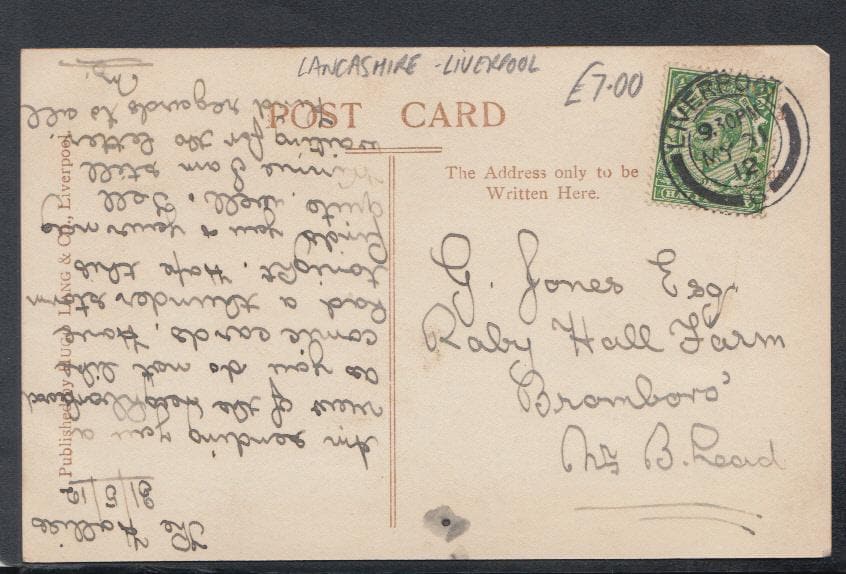 LANCASHIRE - LIVERPOOL
£7.00
POST CARD
The Address only to be
Written Here.
LIVERPOOL
9.30PM
MY
12
G. Jones Esq.
Raby Hall Farm
Bromboro'
Nr B. Head
Published by HUGO LANG & Co., Liverpool
The Hollies
12
Am sending you a
view of the
as you do not like
comic cards. Have
had a thunder storm
tonight. Hope this
finds you & yours
quite well. Tell
I am still
waiting for
letter.
Kind regards to all